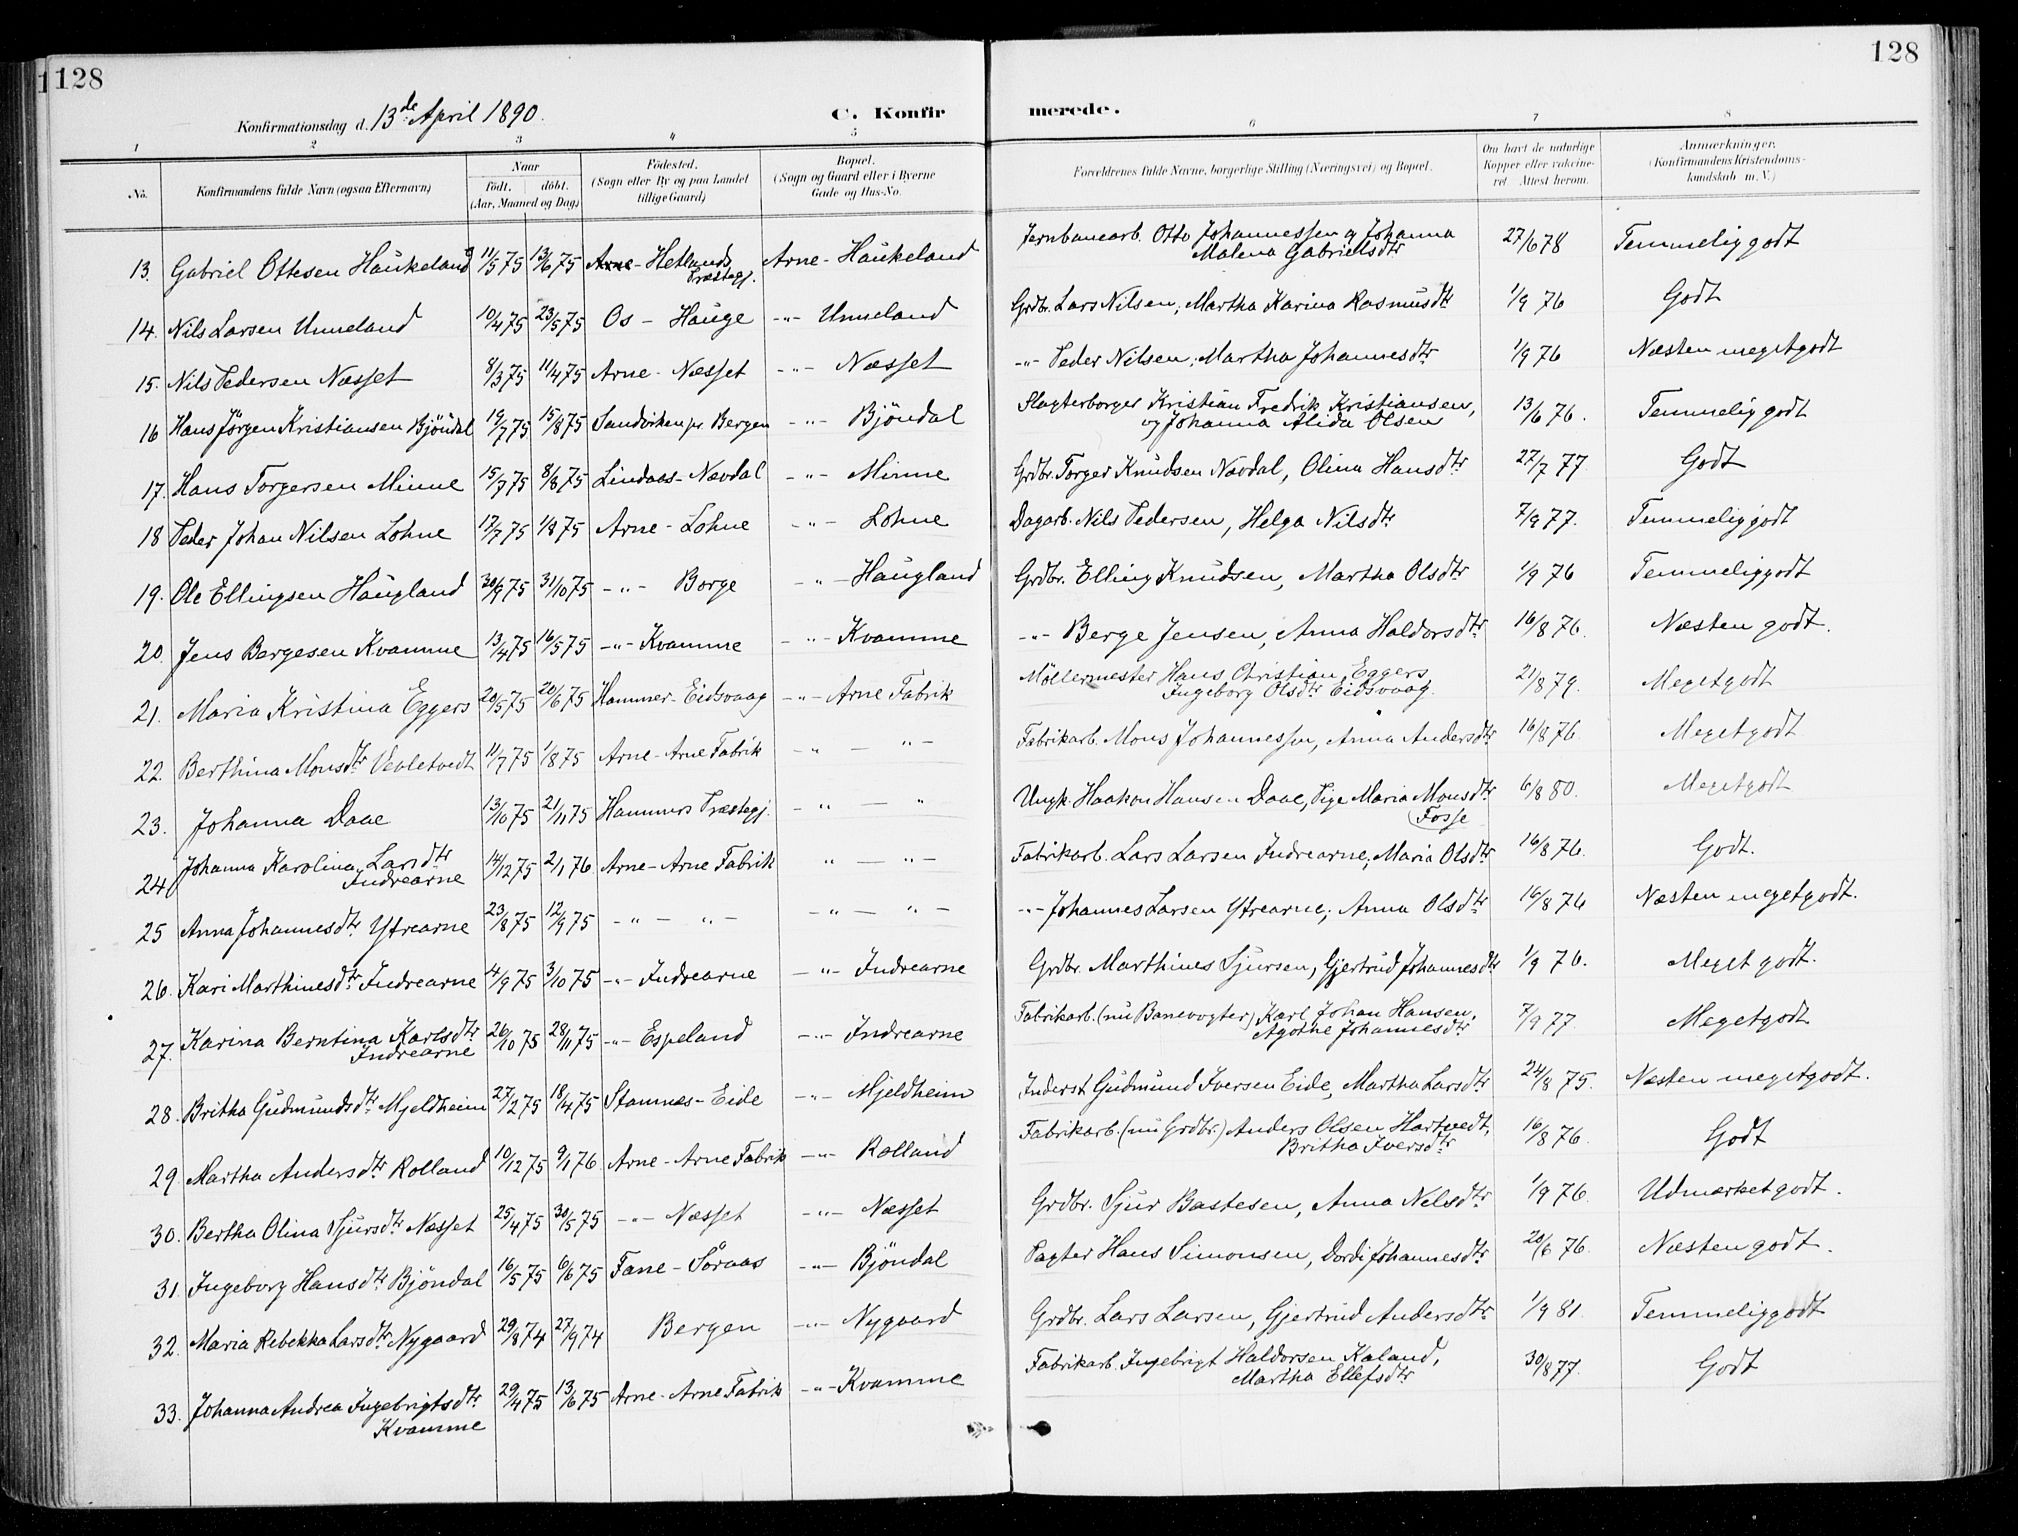 128
128
Konfirmationsdag d. 13de April 1890.
C. Konfirmerede.
1 2 3 4 5 6 7 8
No. Konfirmandens fulde Navn (ogsaa Efternavn) Naar födt. döbt. (Aar, Maaned og Dag) Födested. (Sogn eller By og paa Landet tillige Gaard) Bopæl. (Sogn og Gaard eller i Byerne Gade og Hus-No. Forældrenes fulde Navne, borgerlige Stilling (Næringsvei) og Bopæl. Om havt de naturlige Kopper eller vakcineret. Attest herom. Anmærkninger. (Konfirmandens Kristendomskundskab m. V.)
13. Gabriel Ottesen Haukeland 11/5 75 13/6 75 Arne - Hetlands Præstegj. Arne - Haukeland Jernbanearb. Otto Johannessen og Johanna Malena Gabrielsdtr 27/6 78 Temmelig godt
14. Nils Larsen Unneland 10/4 75 23/5 75 Os - Hauge -"- Unneland Grdbr. Lars Nilsen, Martha Karina Rasmusdtr 1/9 76 Godt
15. Nils Pedersen Næsset 8/3 75 11/4 75 Arne - Næsset -"- Næsset -"- Peder Nilsen, Martha Johannesdtr 1/9 76 Næsten megetgodt
16 Hans Jörgen Kristiansen Bjöndal 19/7 75 15/8 75 Sandviken pr. Bergen -"- Bjöndal Slagterborger Kristian Fredrik Kristiansen, og Johanna Alida Olsen 13/6 76. Temmelig godt
17. Hans Torgersen Minne 15/7 75 8/8 75 Lindaas - Nævdal -"- Minne Grdbr. Torger Knudsen Nævdal, Olina Hansdtr 27/7 77. Godt
18 Peder Johan Nilsen Lohne 17/7 75 1/8 75 Arne - Lohne -"- Lohne Dagarb. Nils Pedersen, Helga Nilsdtr 7/9 77. Temmeliggodt
19. Ole Ellingsen Haugland 30/9 75 31/10 75 -"- Borge -"- Haugland Grdbr. Elling Knudsen, Martha Olsdtr 1/9 76 Temmeliggodt
20. Jens Bergesen Kvamme 13/4 75 16/5 75 -"- Kvamme -"- Kvamme -"- Berge Jensen, Anna Haldorsdtr 16/8 76. Næsten godt.
21. Maria Kristina Eggers 20/5 75 20/6 75 Hammer - Eidsvaag -"- Arne Fabrik Möllermester Hans Christian Eggers Ingeborg Olsdtr Eidsvaag. 21/8 79. Megetgodt
22. Berthina Monsdtr Vevletvedt 11/7 75 1/8 75 Arne - Arne Fabrik -"- -"- Fabrikarb. Mons Johannessen, Anna Andersdtr 16/8 76. Megetgodt
23. Johanna Daae 13/10 75 21/11 75 Hammers Præstegj. -"- " Ungk. Haakon Hansen Daae, Pige Maria Monsdtr (Fosse 6/8 80. Megetgodt
24. Johanna Karolina Larsdtr Indrearne 14/12 75 2/1 76 Arne - Arne Fabrik " - "- Fabrikarb. Lars Larsen Indrearne, Maria Olsdtr 16/8 76. Godt.
25 Anna Johannesdtr Ytrearne 23/8 75 12/9 75 -"- "- -"- "- -"- Johannes Larsen Ytrearne, Anna Olsdtr 16/8 76 Næsten megetgodt.
26. Kari Marthinesdtr Indrearne 4/9 75 3/10 75 -"- Indrearne -"- Indrearne Grdbr. Marthines Sjursen, Gjertrud Johannesdtr 1/9 76. Meget godt.
27. Karina Berntina Karlsdtr Indrearne 26/10 75 28/11 75 -"- Espeland -"- Indrearne Fabrikarb. (nu Banevogter) Karl Johan Hansen, Agothe Johannesdtr 7/9 77 Megetgodt
28. Britha Gudmundsdtr Mjeldheim 27/2 75 18/4 75 Stamnes - Eide -"- Mjeldheim Inderst Gudmund Iversen Eide, Martha Larsdtr 24/8 75. Næsten megetgodt.
29. Martha Andersdtr Rolland 10/12 75 9/1 76 Arne - Arne Fabrik -"- Rolland Fabrikarb. (nu Grdbr.) Anders Olsen Hartvedt, Britha Iversdtr 16/8 76. Godt
30. Bertha Olina Sjursdtr Næsset 25/4 75 30/5 75 -"- Næsset -"- Næsset Grdbr. Sjur Bastesen, Anna Nelsdtr 1/9 76. Udmærketgodt.
31. Ingeborg Hansdtr Bjöndal 16/5 75 6/6 75 Fane - Söraas -"- Bjöndal Pagter Hans Simonsen, Dordi Johannesdtr 20/6 76. Næsten godt.
32. Maria Rebekka Larsdtr Nygaard 29/8 74 27/9 74 Bergen -"- Nygaard Grdbr. Lars Larsen, Gjertrud Andersdtr 1/9 81. Temmeliggodt
33. Johanna Andrea Ingebrigtsdtr Kvamme 29/4 75 13/6 75 Arne - Arne Fabrik -"- Kvamme Fabrikarb. Ingebrigt Haldorsen Kaland, Martha Ellefsdtr 30/8 77. Godt